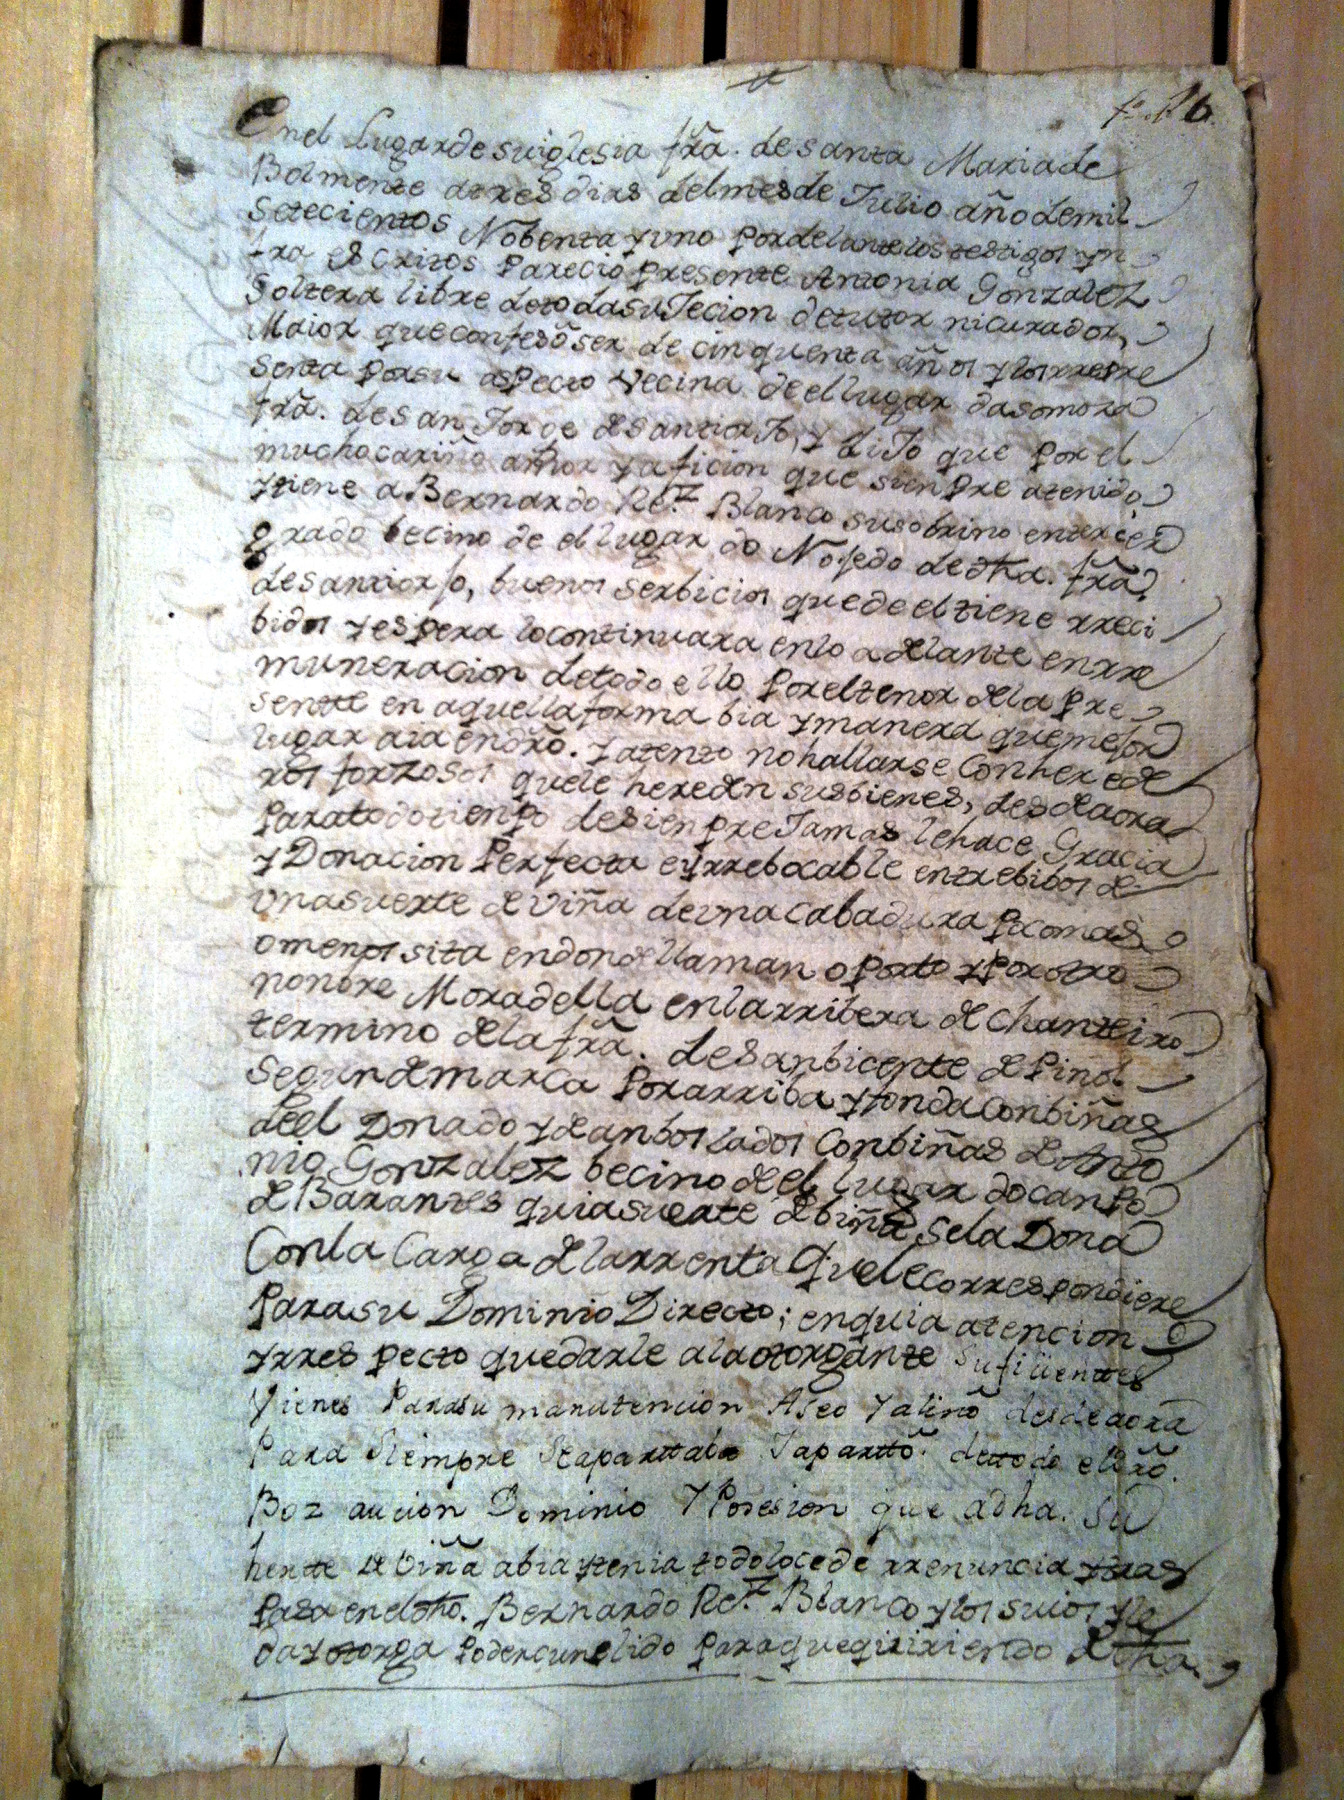 fº. 26
En el Lugar de su iglesia frã. de santa Maria de
Bolmente a tres dias del mes de Julio año de mil
setecientos Nobenta y uno por delante los testigos yn
fra escritos parecio presente Antonia Gonzalez
Soltera libre de toda suJecion de tutor ni curador,
Maior que confesõ ser de cinquenta años y los rrepre
senta por su aspecto Vecina de el lugar da somoza
frã. de san Jorge de santiorJo, y diJo que por el
mucho cariño amor y aficion que sienpre a tenido,
y tiene a Bernardo Re.z Blanco su sobrino en tercer
grado becino de el lugar do Nosedo de dha. frã
de santiorjo, buenos serbicios que de el tiene rreci
bidos y espera lo continuara en lo adelante en rre
muneracion de todo ello por el tenor de la pre
sente en aquella forma bia y manera que mejor
lugar aia en drõ. y atento no hallarse Con herede
ros forzosos que le hereden sus bienes, desde aora
para todo tienpo de sienpre Jamas le hace Gracia
y Donacion Perfecta e yrrebocable entrebibos de
una suerte de Viña de una Cabadura poco mas
o menos sita en donde llaman o porto y por otro
nonbre Moradella en la rribera de Chanteiro
termino de la frã. de san bicente de Pinol
Segun demarca por arriba y fonda Con biñas
de el Donado y de anbos lados Con biñas de Anto
nio Gonzalez becino de el lugar do canpo
de Barantes quia suerte de biña se la Dona
Con la Carga de la rrenta que le correspondiere
para su Dominio Directo; en quia atencion
y rrespecto quedarle a la otorgante sufiçientes
Vienes para su manutencion Aseo y aliño desde aora
Para Siempre se apartaba Japarttõ. de ttodo el drõ.
Boz accion Dominio y Posesion que a dha. Su
hertte de Viña abia y tenia todo lo cede rrenuncia y tras
pasa en el dho. Bernardo Re.z Blanco y los suios y le
da y otorga poder cunplido para que quiriendo de dha.